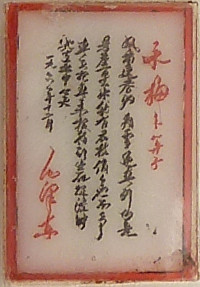 咏梅 卜算子
風雨送春归飛雪迎春到已是
悬崖百丈冰犹有花枝俏俏也不争
春只把春来报待到山花烂漫时
她在丛中笑
一九六一年十二月
毛泽东